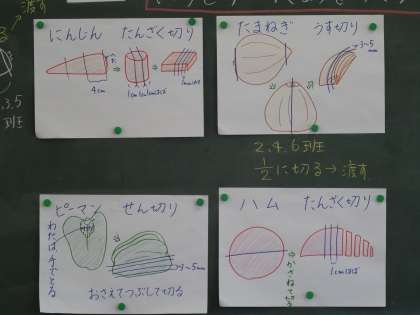 渡す
3.5
班
にんじん たんざく切り
4cm
1cm 1cm 1cmはば
たまねぎ うす切り
3〜5
mm
2.4.6班
1/2に切る→渡す
ピーマン せん切り
わたは手でとる
3〜5mm
おさえてつぶして切る
ハム たんざく切り
かさねて切る
1cmはば